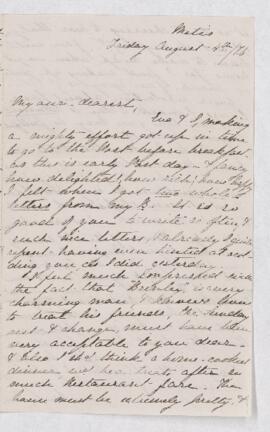 Metis
Friday August 4th/78
My own dearest,
Eva & I making
a mighty effort got up in time
to go to the Post before breakfast
as this is early Post day - & fancy
how delighted! how rich! how happy
I felt when I got two whole
letters from my B. It is so
good of you to write so often, &
such nice letters, & already I quite
repent having even hinted at scol-
ding you as I did yesterday.
I feel much impressed with
the fact that Mr. is very
charming man, & knows how
to treat his friends, the Sunday
rest & change, must have been
very acceptable to you dear -
& Also I should think a home-cooked
dinner was a treat after so
much Restaurant fare. The
house must be extremely pretty, &